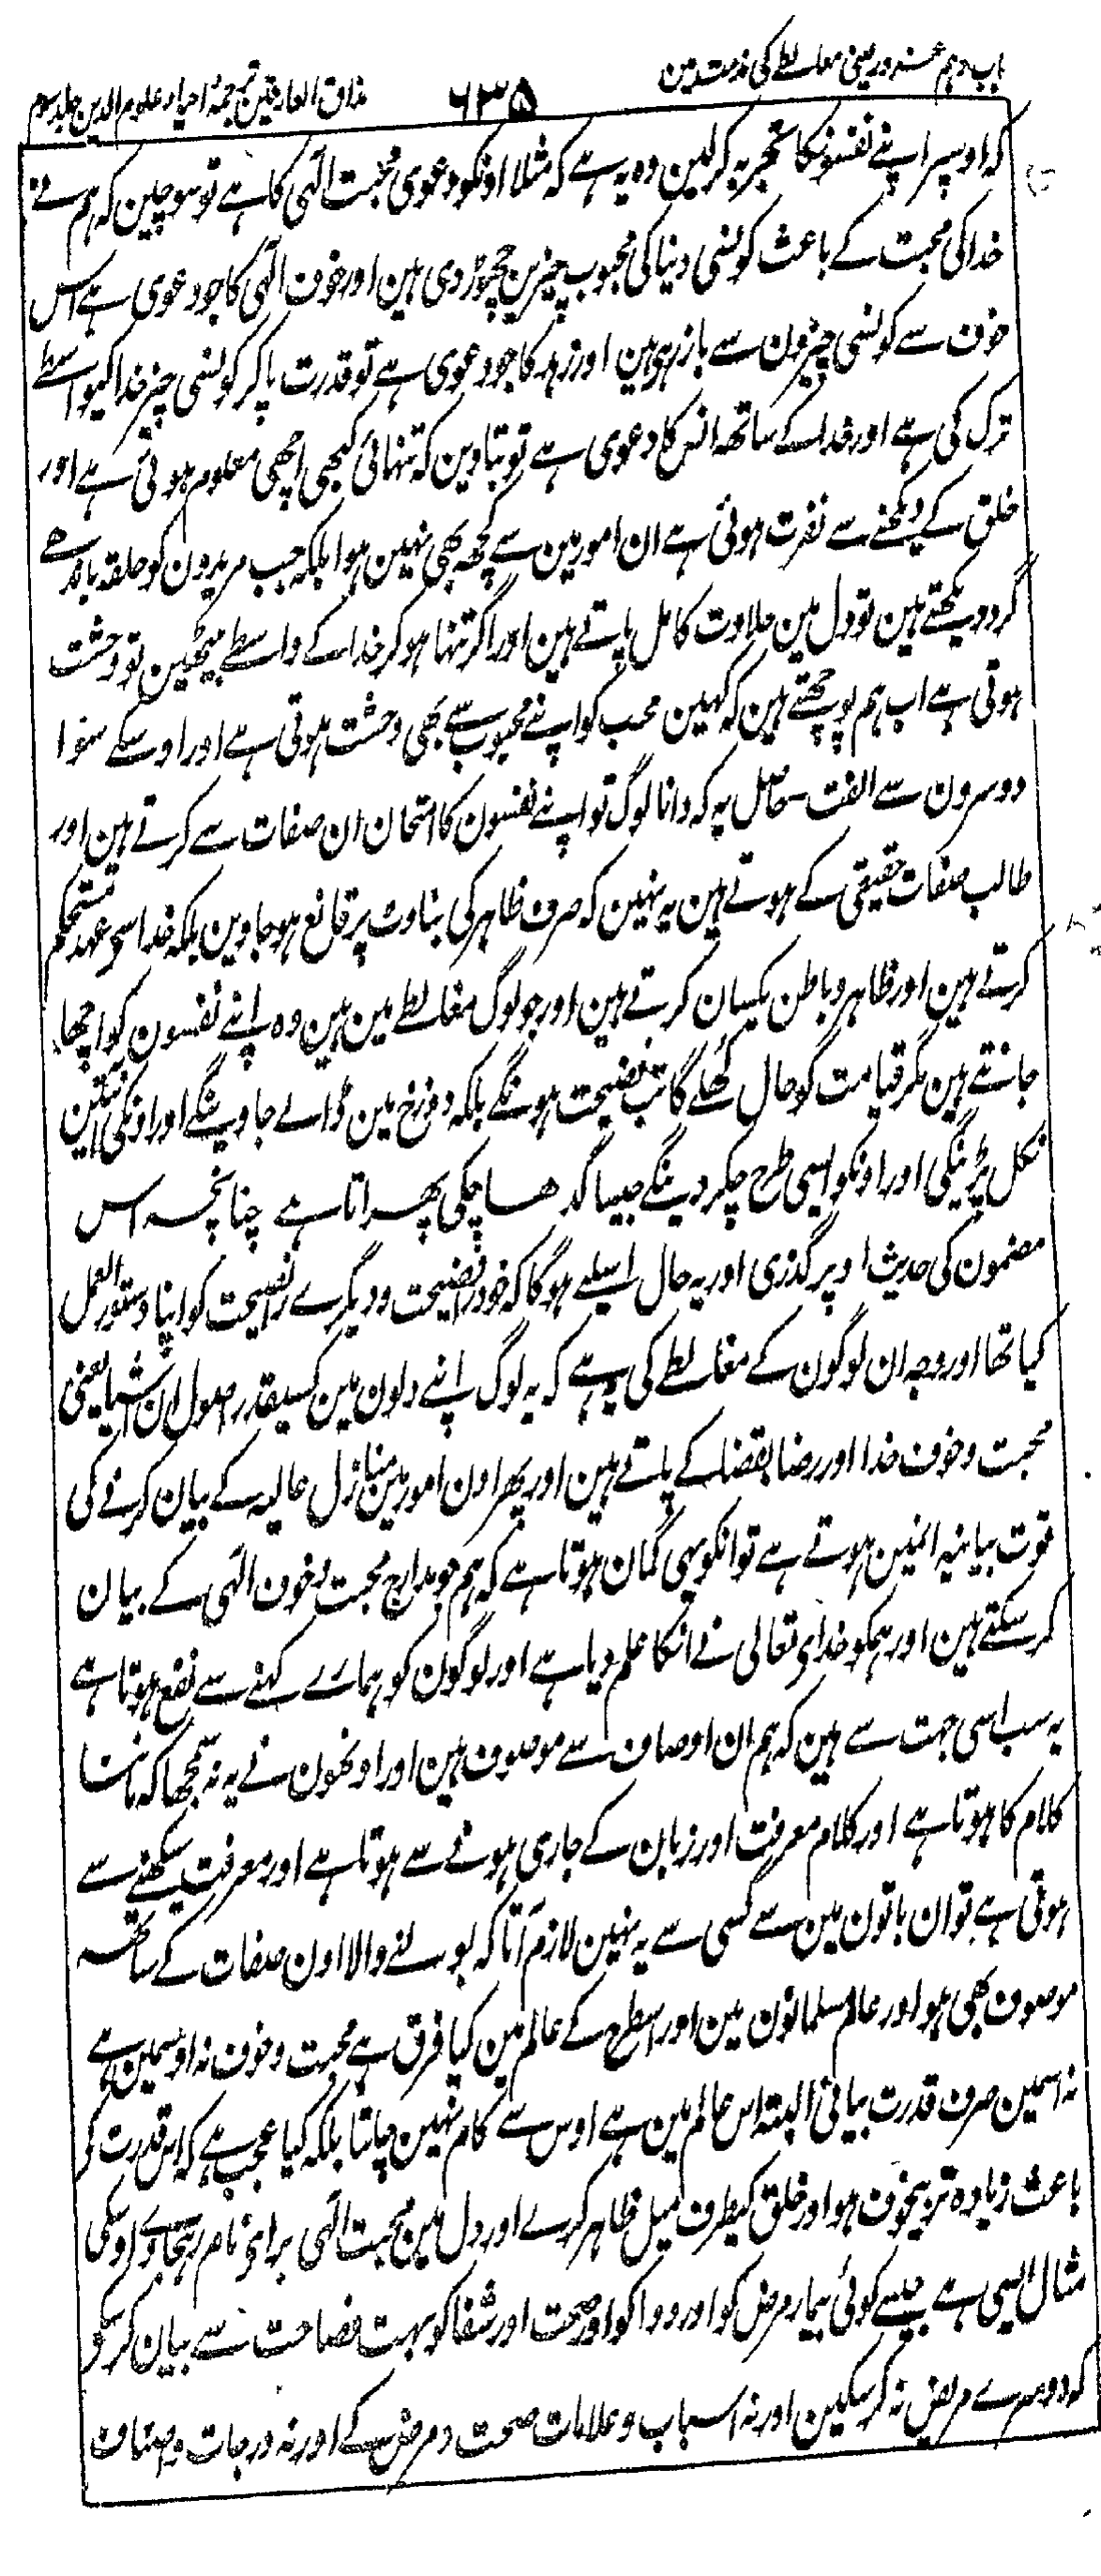 باب دہم غرور یعنی مغالطے کی مذمت مین
۶۳۵
مذاق العارفین ترجمۂ احیاء علوم الدین جلد سوم
کہ اوسپر اپنے نفسونکا تجربہ کر لین وہ یہ ہے کہ مثلا اونکو دعوی محبت الٰہی کا ہے تو سوچین کہ ہم نے
خدا کی محبت کے باعث کونسی دنیا کی محبوب چیزین چھوڑ دی ہین اور خوف الٰہی کا جو دعوی ہے اس
خوف سے کونسی چیزون سے باز رہی ہین اور زہد کا جو دعوی ہے تو قدرت پا کر کونسی چیز خدا کیواسطے
ترک کی ہے اور خدا کے ساتھ انس کا دعوی ہے تو بتادین کہ تنہائی کبھی اچھی معلوم ہوئی ہے اور
خلق کے دیکھنے سے نفرت ہوئی ہے ان امور مین سے کچھ بھی نہین ہوا بلکہ جب مریدون کو حلقہ باندھے
گرد دیکھتے ہین تو دل مین حلاوت کامل پاتے ہین اور اگر تنہا ہو کر خدا کے واسطے بیٹھین تو وحشت
ہوتی ہے اب ہم پوچھتے ہین کہ کہین محب کو اپنے محبوب سے بھی وحشت ہوتی ہے اور اوسکے سوا
دوسرون سے الفت حاصل یہ کہ دانا لوگ تو اپنے نفسون کا امتحان ان صفات سے کرتے ہین اور
طالب صفات حقیقی کے ہوتے ہین یہ نہین کہ صرف ظاہر کی بناوٹ پر قانع ہو جاوین بلکہ خدا سے عہد مستحکم
کرتے ہین اور ظاہر و باطن یکسان کرتے ہین اور جو لوگ مغالطے مین ہین وہ اپنے نفسون کو اچھا
جانتے ہین مگر قیامت کو حال کھلے گا تب فضیحت ہونگے بلکہ دوزخ مین ڈالے جاوینگے اور اونکی انتین
نکل پڑینگی اور اونکو اسی طرح چکر دینگے جیسا گدھا چکی پھراتا ہے چنانچہ اس
مضمون کی حدیث اوپر گذری اور یہ حال اسلیے ہوگا کہ خود را فضیحت و دیگرے را نصیحت کو اپنا دستور العمل
کیا تھا اور وجہ ان لوگون کے مغالطے کی یہ ہے کہ یہ لوگ اپنے دلون مین کسیقدر اصول ان اشیا یعنی
محبت و خوف خدا اور رضا بقضا کے پاتے ہین اور پھر اون امور مین منازل عالیہ کے بیان کرنے کی
قوت بیانیہ انمین ہوتے ہے تو انکو یہی گمان ہوتا ہے کہ ہم جو مدارج محبت و خوف الٰہی کے بیان
کر سکتے ہین اور ہمکو خدای تعالی نے انکا علم دیا ہے اور لوگون کو ہمارے کہنے سے نفع ہوتا ہے
یہ سب اسی جہت سے ہین کہ ہم ان اوصاف سے موصوف ہین اور اونھون نے یہ نہ سمجھا کہ ماننا
کلام کا ہوتا ہے اور کلام معرفت اور زبان کے جاری ہونے سے ہوتا ہے اور معرفت سیکھنے سے
ہوتی ہے تو ان باتون مین سے کسی سے یہ نہین لازم آتا کہ بولنے والا اون صفات کے ساتھ
موصوف بھی ہو اور عام مسلمانون مین اور اسطرح کے عالم مین کیا فرق ہے محبت و خوف نہ اوسمین ہے
نہ اسمین صرف قدرت بیانی البتہ اس عالم مین ہے اوس سے کام نہین چلتا بلکہ کیا عجب ہے کہ اس قدرت کی
باعث زیادہ تر بیخوف ہو اور خلق کیطرف میل ظاہر کرے اور دل مین محبت الٰہی برای نام رہجاوے اوسکی
مثال ایسی ہے جیسے کوئی بیمار مرض کو اور دوا کو اور صحت اور شفا کو بہت فصاحت سے بیان کر سکے
کہ دوسرے مریض نہ کر سکین اور نہ اسباب و علامات صحت و مرض کے اور نہ درجات و اصناف